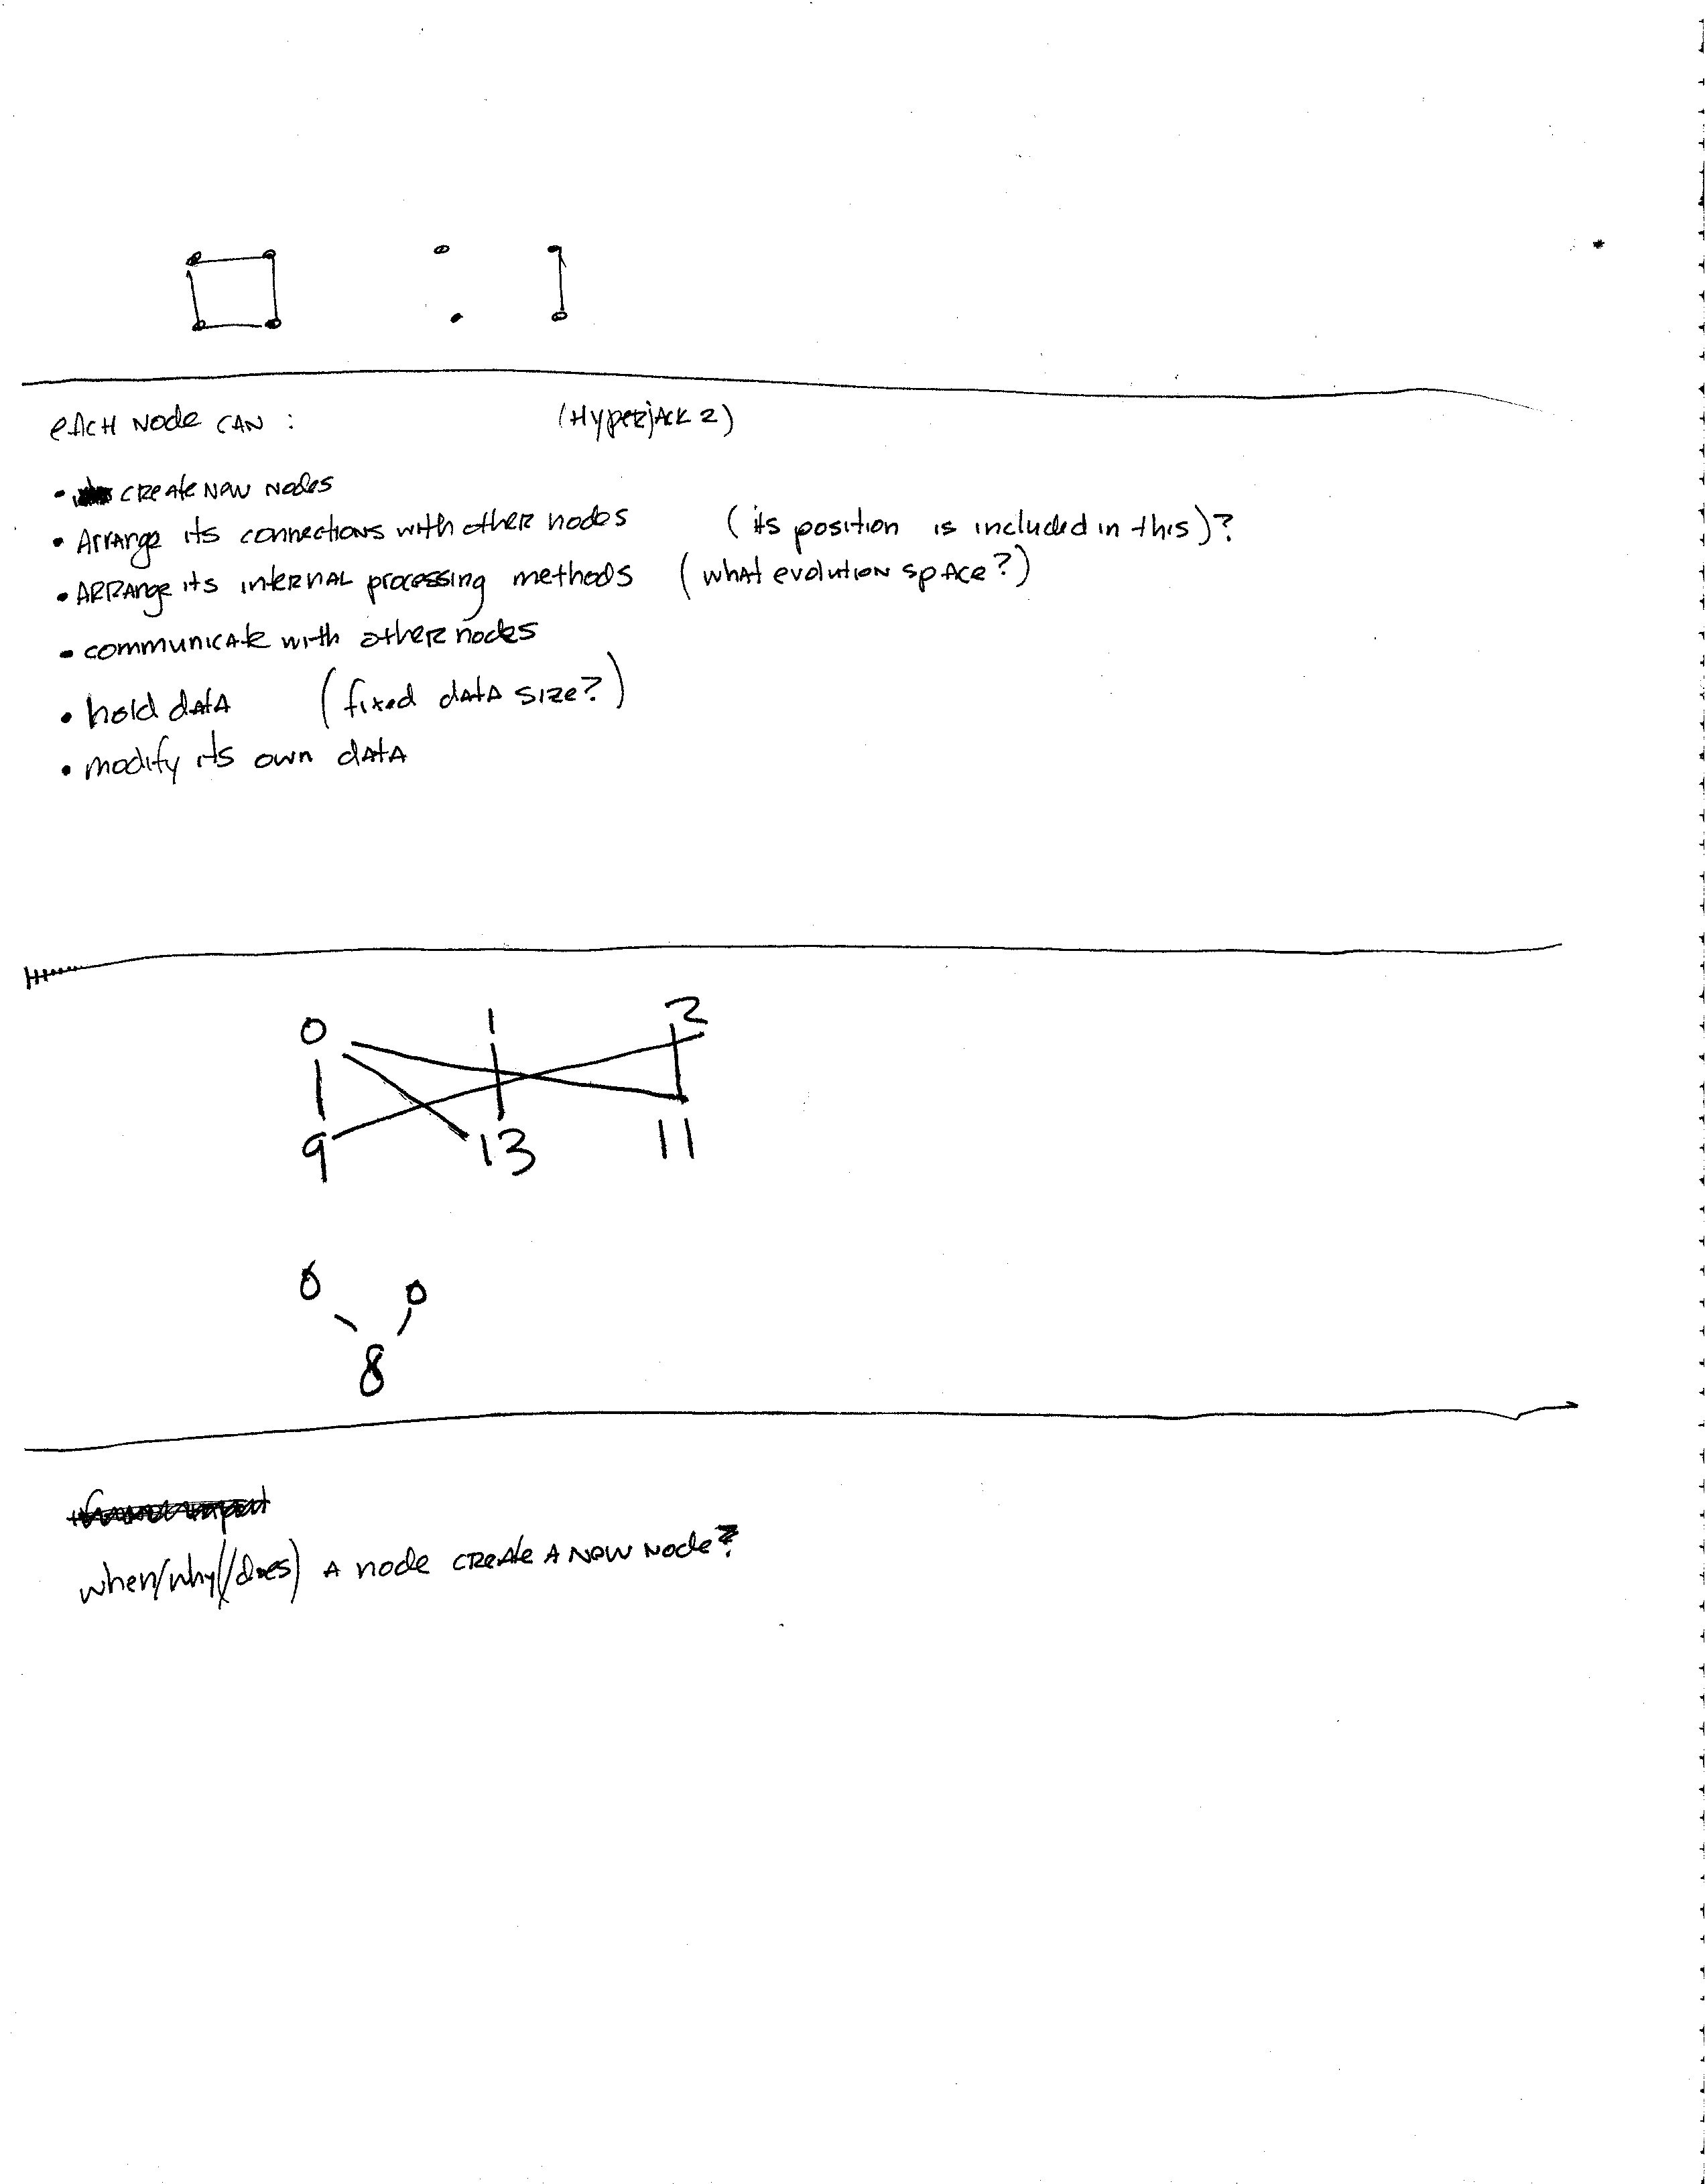 eACH Node CAN : (HyperjAck 2)
• CReAte New Nodes
• Arrange its connections with other nodes (its position is included in this)?
• ARRAnge its inteRNAL processing methods (what evolution spAce?)
• communicAte with otheR nodes
• hold datA (fixed datA size?)
• modify its own datA
0 1 2
9 13 11
0 0
8
when/why(/does) A node CReAte A New Node?